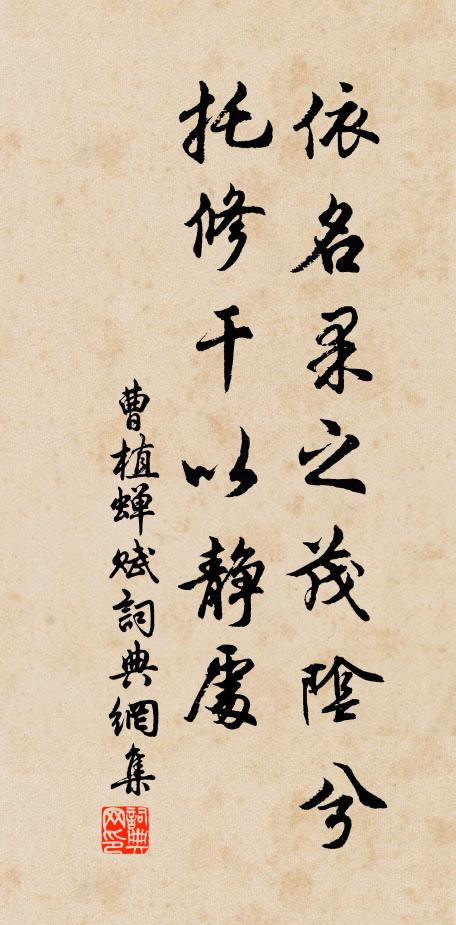 依名果之茂陰兮
托修干以靜處
曹植蝉赋詞典網集
詞典网印